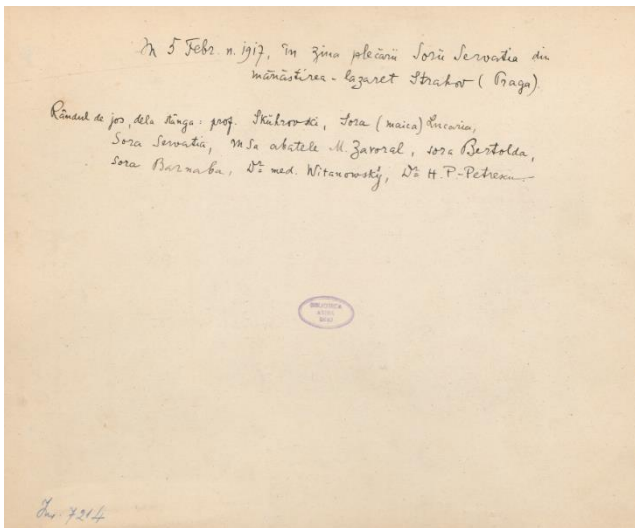 În 5 Febr. n. 1917, în ziua plecării Sorii Servatia din
mănăstirea-lazaret Strahov (Praga).
Rândul de jos, dela stânga: prof. Skuhrovski, Sora (maica) Lucaria,
Sora Servatia, M Sa abatele M. Zavoral, sora Bertolda,
sora Barnaba, Dr. med. Witanowský, Dr. H. P.-Petrescu.
BIBLIOTECA
ASTRA
SIBIU
Inv. 7214